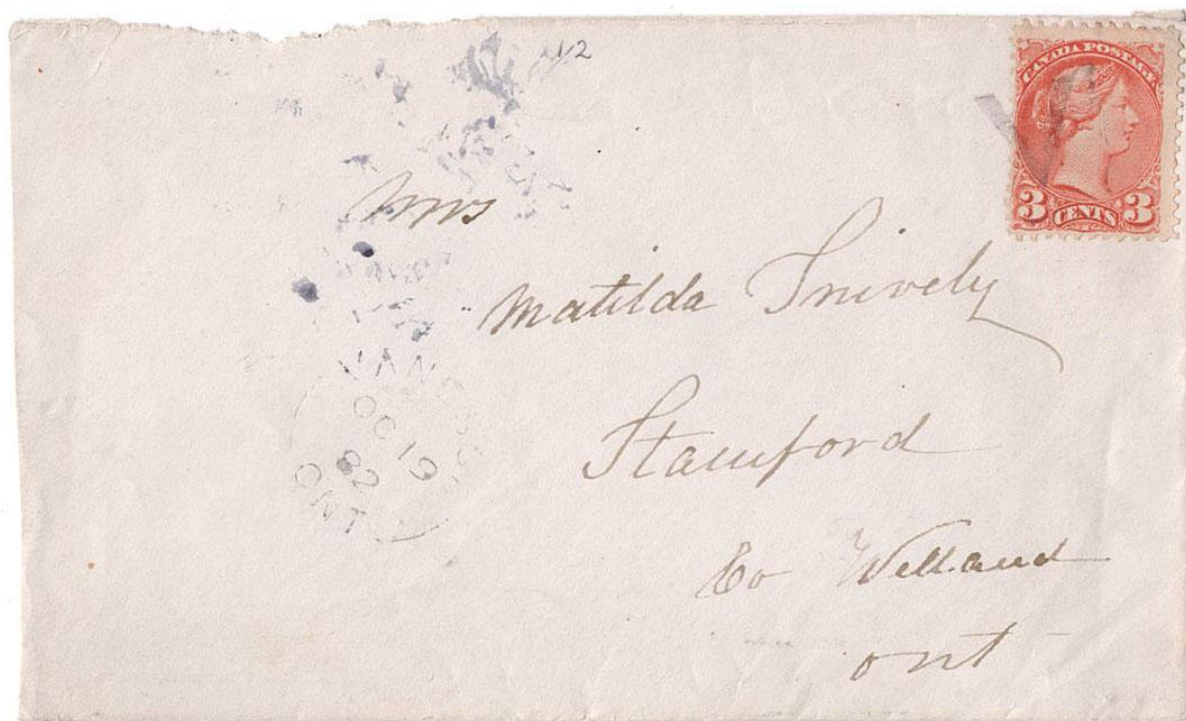 CANADA POSTAGE
3 CENTS 3
Mrs
Matilda Snively
Stamford
Co Welland
ont
OC 19
82
ONT